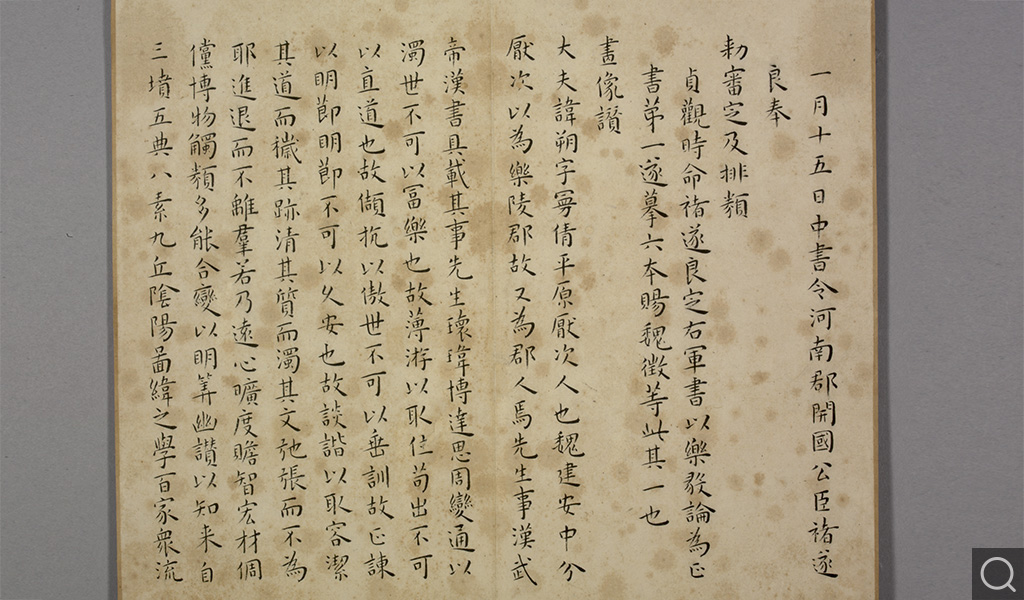 一月十五日中書令河南郡開國公臣褚遂
良奉
勑審定及排類
貞觀時命褚遂良定右軍書以樂毅論為正
書第一遂摹六本賜魏徵等此其一也
畫像讚
大夫諱朔字曼倩平原厭次人也魏建安中分
厭次以為樂陵郡故又為郡人焉先生事漢武
帝漢書具載其事先生瓌瑋博達思周變通以
濁世不可以富樂也故薄游以取位苟出不可
以直道也故傾抗以傲世不可以垂訓故正諫
以明節明節不可以久安也故談諧以取容潔
其道而穢其跡清其質而濁其文弛張而不為
耶進退而不離羣若乃遠心曠度贍智宏材倜
儻博物觸類多能合變以明筭幽讚以知来自
三墳五典八素九丘陰陽圖緯之學百家衆流